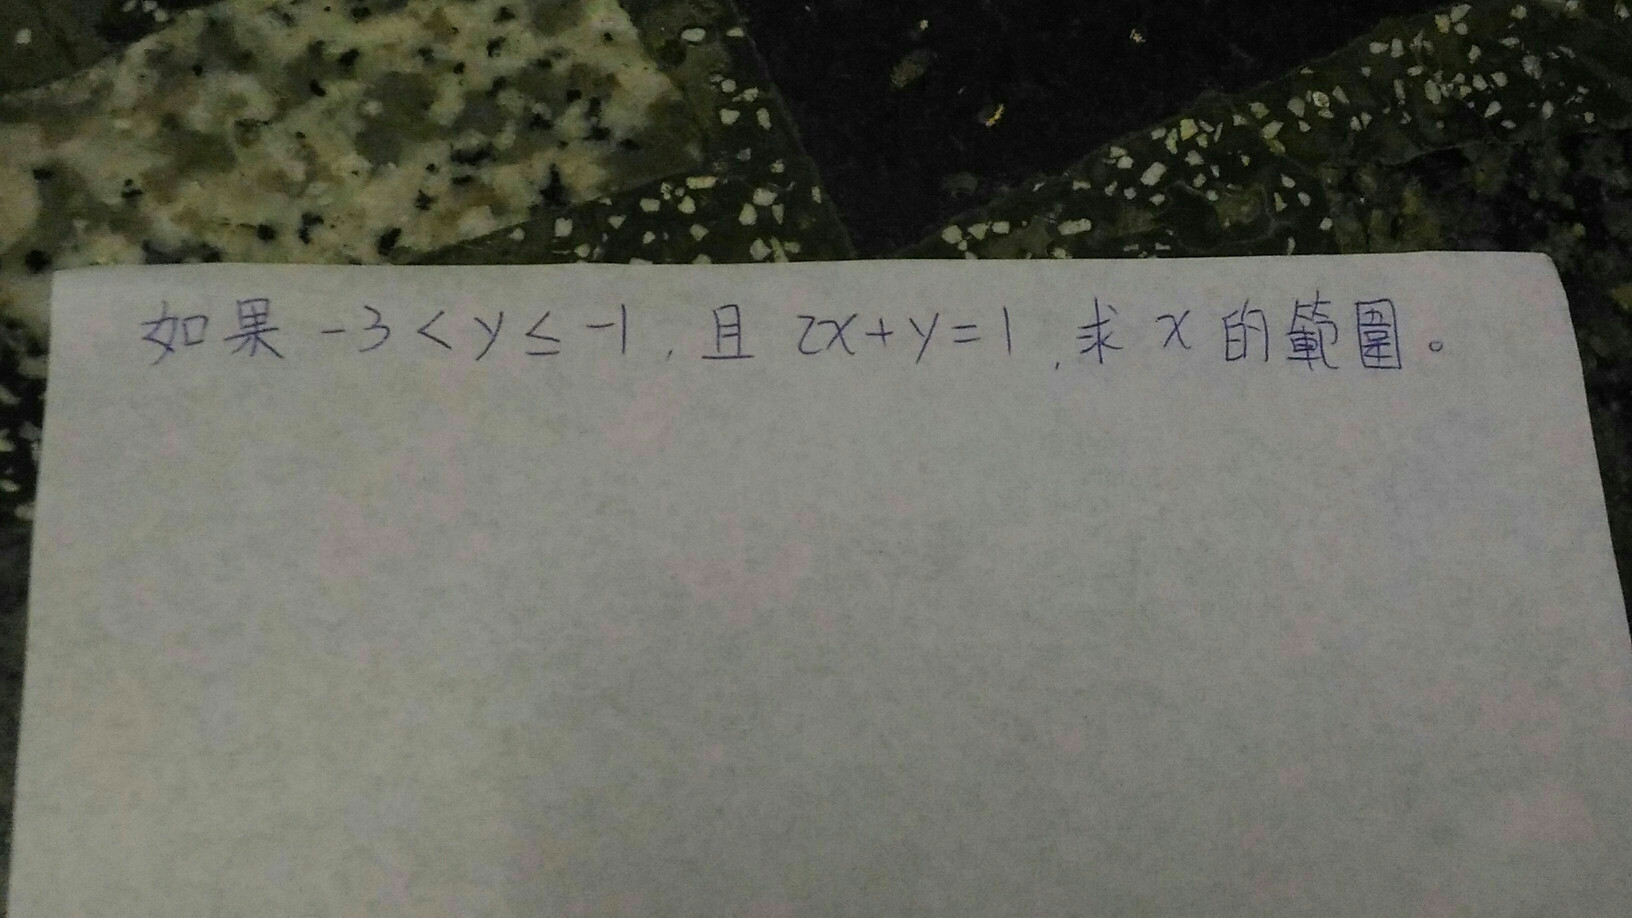 如果 -3 < y ≤ -1, 且 2x + y = 1, 求 x 的範圍。